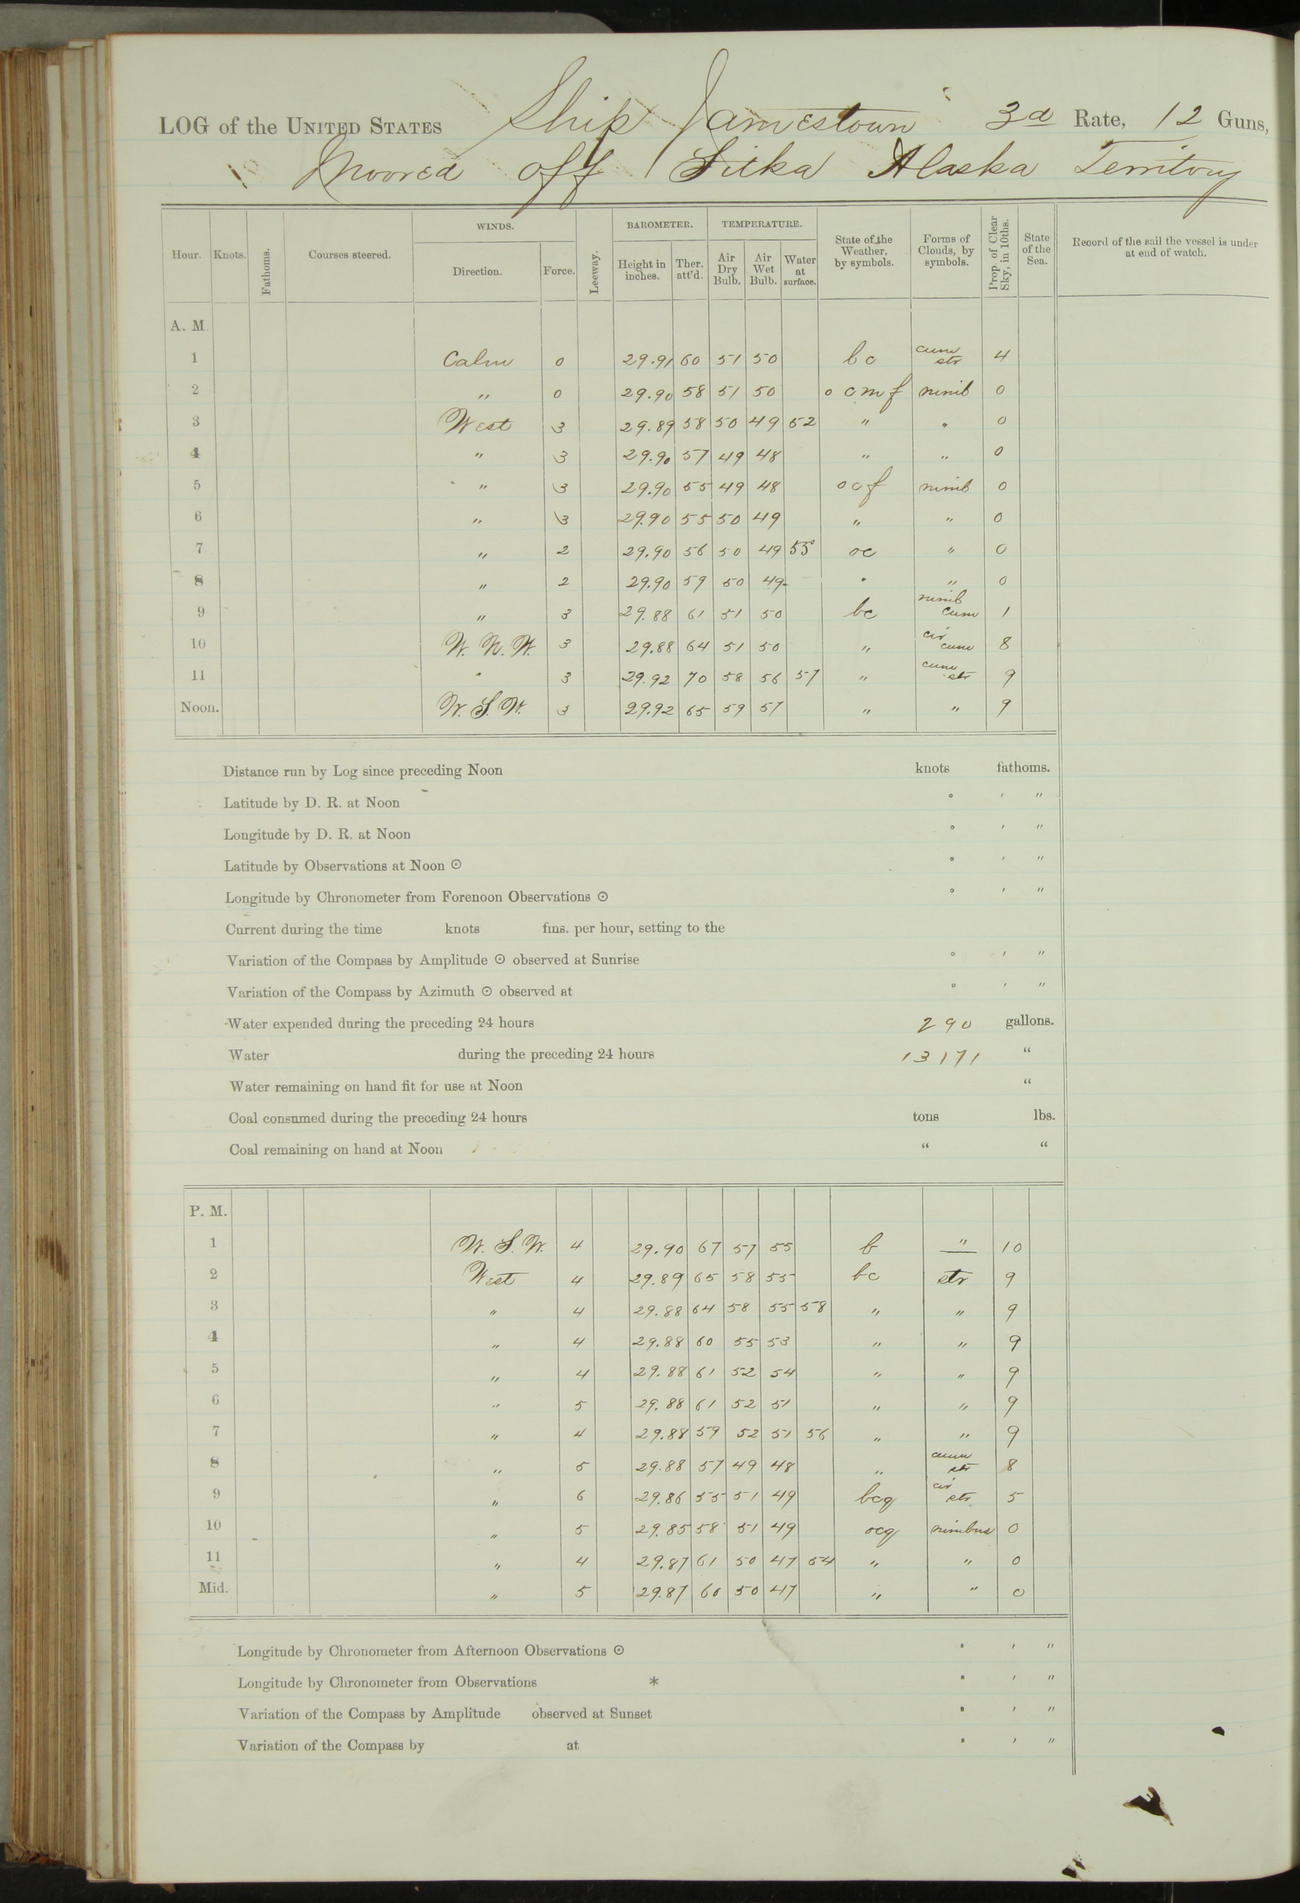 LOG of the UNITED STATES Ship Jamestown 3rd Rate, 12 Guns,
Moored off Sitka Alaska Territory
Hour. Knots. Fathoms. Courses steered. WINDS. Direction. Force. Leeway. BAROMETER. Height in inches. Ther. att'd. TEMPERATURE. Air Dry Bulb. Air Wet Bulb. Water at surface. State of the Weather, by symbols. Forms of Clouds, by symbols. Prop. of Clear Sky, in 10ths. State of the Sea. Record of the sail the vessel is under at end of watch.
A. M.
1 Calm 0 29.91 60 51 50 bc cum str 4
2 " 0 29.90 58 51 50 ocmf nimb 0
3 West 3 29.89 58 50 49 52 " " 0
4 " 3 29.90 57 49 48 " " 0
5 " 3 29.90 55 49 48 ocf nimb 0
6 " 3 29.90 55 50 49 " " 0
7 " 2 29.90 56 50 49 55 oc " 0
8 " 2 29.90 59 50 49 " " 0
9 " 3 29.88 61 51 50 bc nimb cum 1
10 W. N. W. 3 29.88 64 51 50 " cir cum 8
11 " 3 29.92 70 58 56 57 " cum str 9
Noon. W. S. W. 3 29.92 65 59 57 " " 9
Distance run by Log since preceding Noon knots fathoms.
Latitude by D. R. at Noon ° ' "
Longitude by D. R. at Noon ° ' "
Latitude by Observations at Noon ⊙ ° ' "
Longitude by Chronometer from Forenoon Observations ⊙ ° ' "
Current during the time knots fms. per hour, setting to the
Variation of the Compass by Amplitude ⊙ observed at Sunrise ° ' "
Variation of the Compass by Azimuth ⊙ observed at ° ' "
Water expended during the preceding 24 hours 290 gallons.
Water during the preceding 24 hours 13171 "
Water remaining on hand fit for use at Noon "
Coal consumed during the preceding 24 hours tons lbs.
Coal remaining on hand at Noon " "
P. M.
1 W. S. W. 4 29.90 67 57 55 b " 10
2 West 4 29.89 65 58 55 bc str 9
3 " 4 29.88 64 58 55 58 " " 9
4 " 4 29.88 60 55 53 " " 9
5 " 4 29.88 61 52 54 " " 9
6 " 5 29.88 61 52 51 " " 9
7 " 4 29.88 59 52 51 56 " " 9
8 " 5 29.88 57 49 48 " cum str 8
9 " 6 29.86 55 51 49 bcq cir str 5
10 " 5 29.85 58 51 49 ocq nimbus 0
11 " 4 29.87 61 50 47 54 " " 0
Mid. " 5 29.87 60 50 47 " " 0
Longitude by Chronometer from Afternoon Observations ⊙ ° ' "
Longitude by Chronometer from Observations * ° ' "
Variation of the Compass by Amplitude observed at Sunset ° ' "
Variation of the Compass by at ° ' "